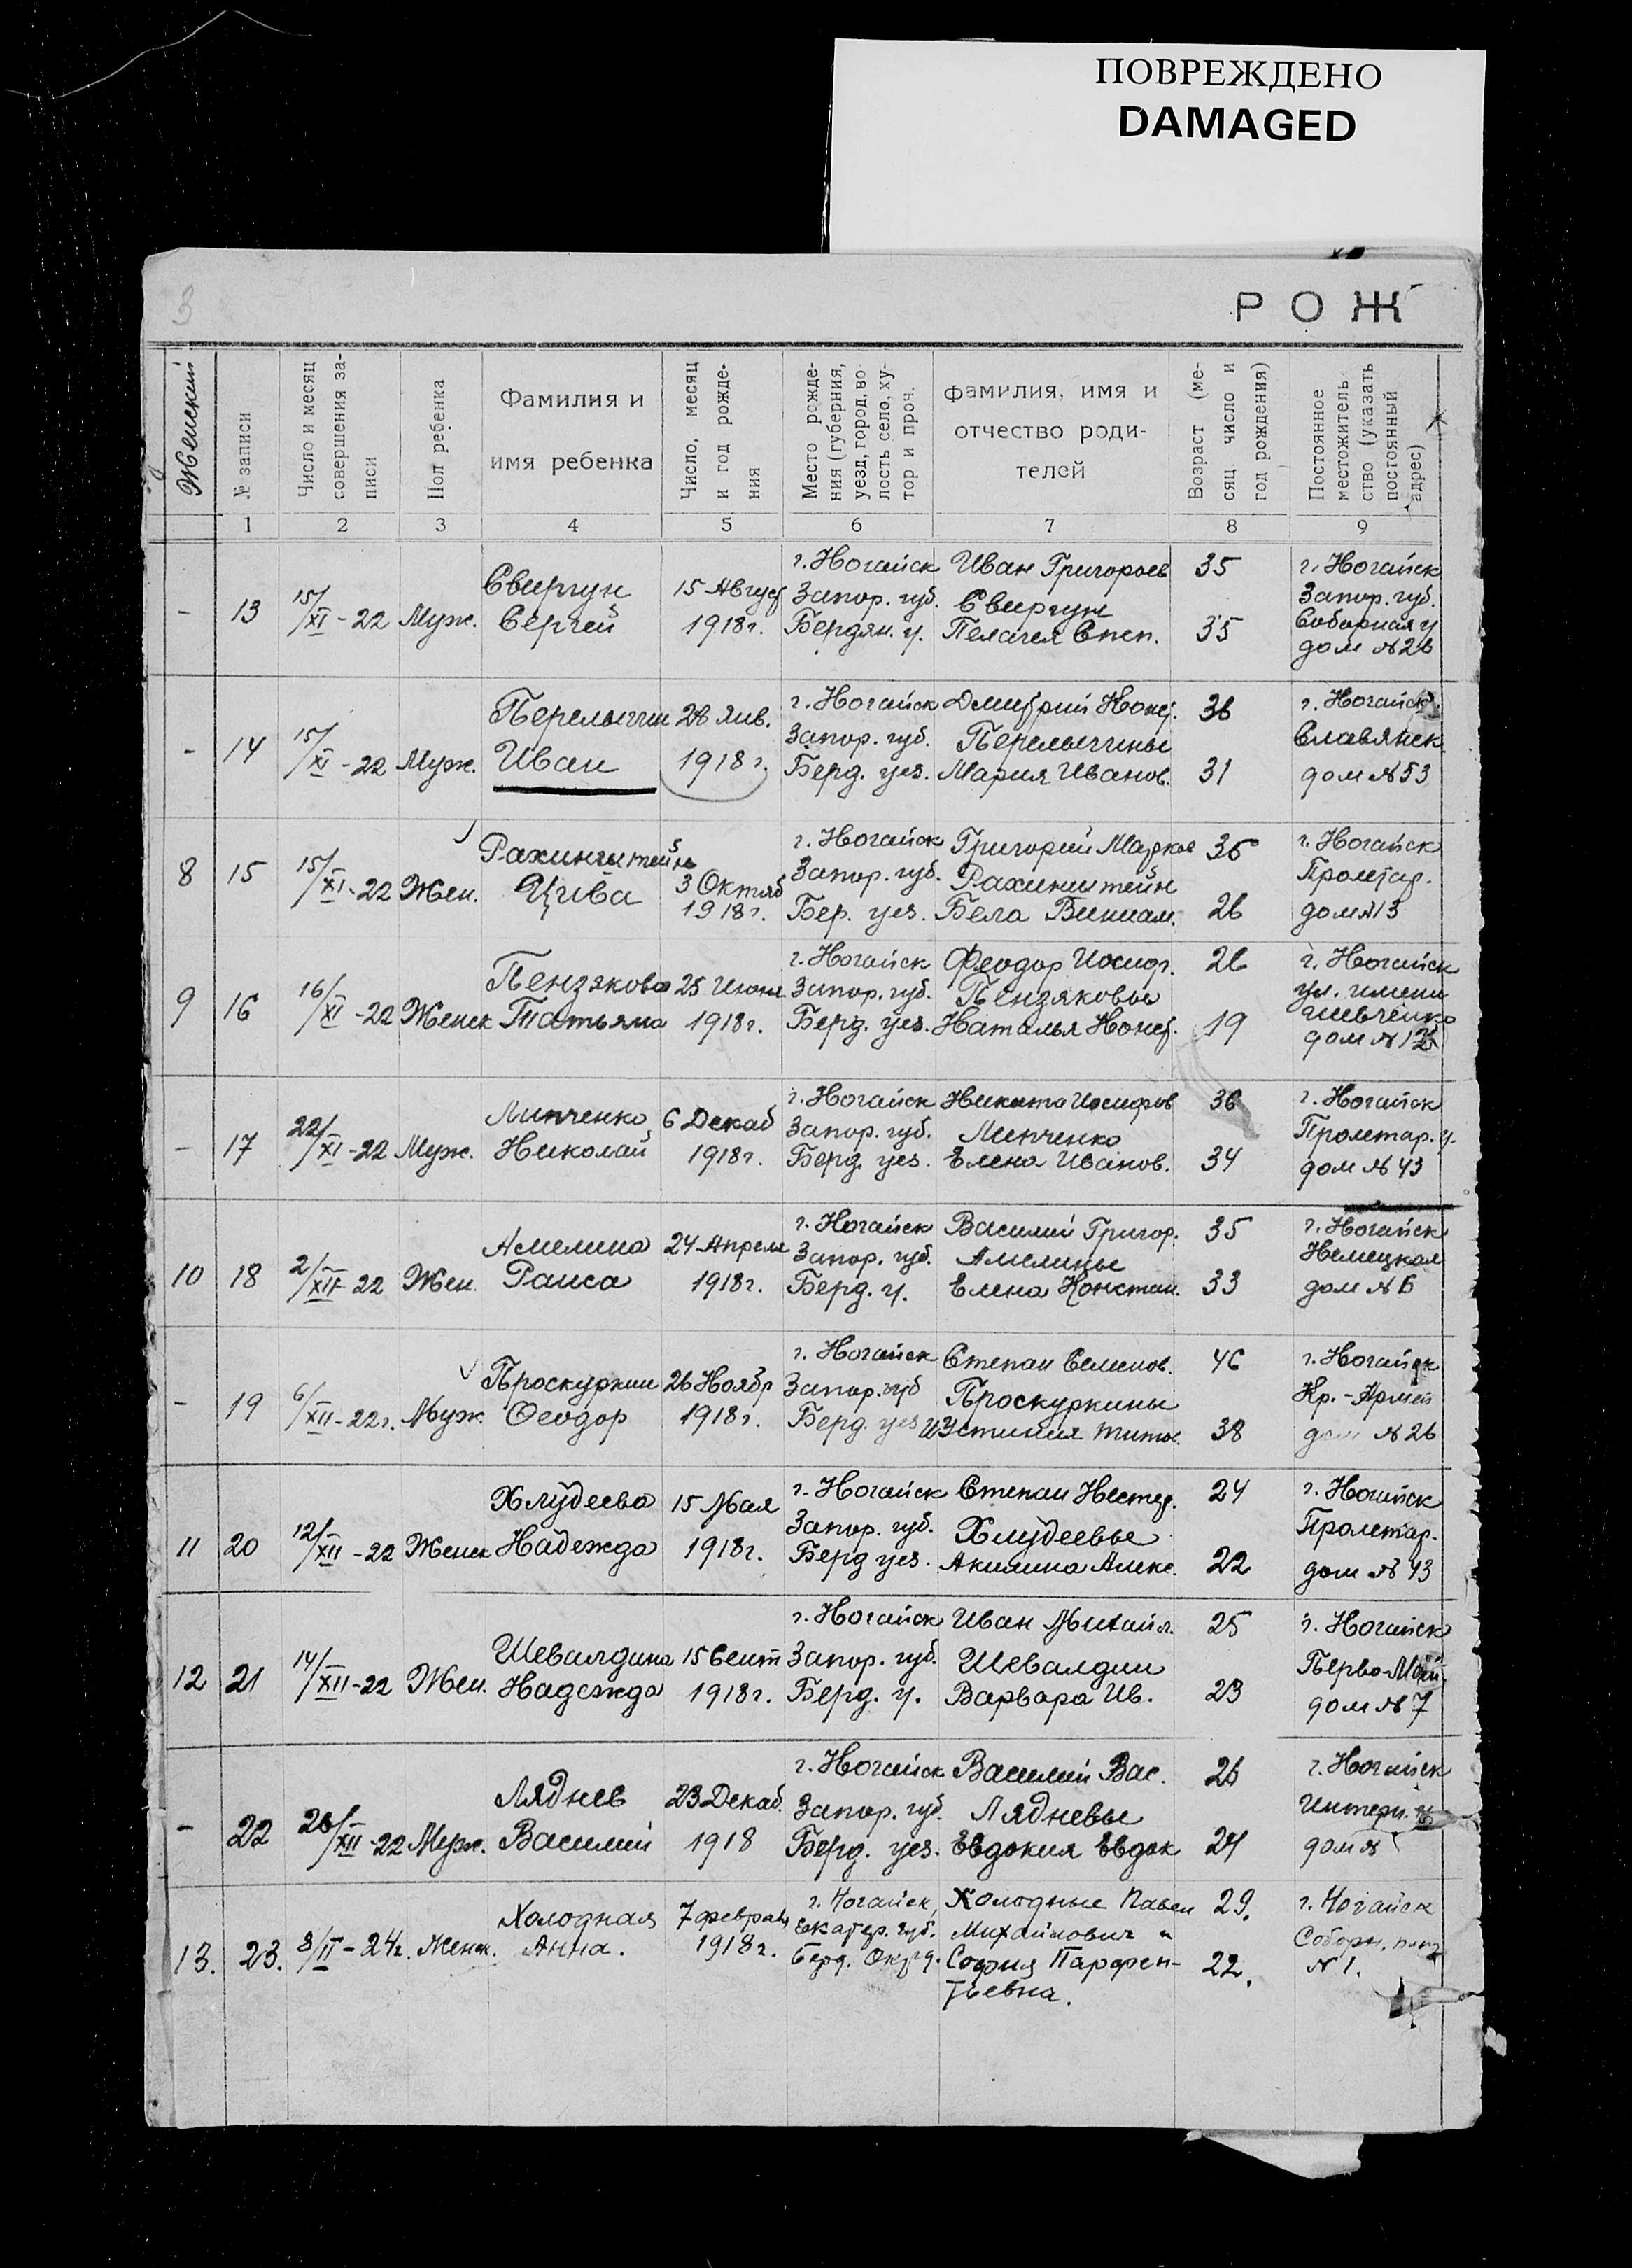 ПОВРЕЖДЕНО
DAMAGED
3
РОЖ
Женский
№ записи
Число и месяц
совершения за-
писи
Пол ребенка
Фамилия и
имя ребенка
Число, месяц
и год рожде-
ния
Место рожде-
ния (губерния,
уезд, город, во
лость село, ху-
тор и проч.
фамилия, имя и
отчество роди-
телей
Возраст (ме-
сяц число и
год рождения)
Постоянное
местожитель
ство (указать
постоянный
адрес)
1 2 3 4 5 6 7 8 9
г. Ногайск Иван Григорьев 35 г. Ногайск
Свиргун 15 Август Запор. губ. Свиргун Запор. губ.
- 13 15/XI-22 Муж. Сергей 1918г. Бердян. у. Пелагея Степ. 35 Соборная у
дом №26
г. Ногайск Дмитрий Конст. 36 г. Ногайск
28 Янв. Запор. губ. Славянск.
- 14 15/XI-22 Муж. Иван 1918г. Берд. уез. Мария Иванов. 31 дом №53
г. Ногайск Григорий Марков 35 г. Ногайск
Рахинштейн Запор. губ. Рахинштейн Пролетар.
8 15 15/XI-22 Жен. Цива 3 Октяб
1918г. Бер. уез. Бела Вениам. 26 дом №13
г. Ногайск Феодор Иосиф. 26 г. Ногайск
Пензякова 25 Запор. губ. Пензяковы ул. имени
9 16 16/XI-22 Женск Татьяна 1918г. Берд. уез. Наталья Конст. 19 Шевченко
дом №
г. Ногайск Никита Иосифов 36 г. Ногайск
Липченко 6 Декаб Запор. губ. Липченко Пролетар. у.
- 17 22/XI-22 Муж. Николай 1918г. Берд. уез. Елена Иванов. 34 дом №43
г. Ногайск Василий Григор. 35 г. Ногайск
Амелина 24 Апреля Запор. губ. Амелины Немецкая
10 18 2/XII-22 Жен. Раиса 1918г. Берд. у. Елена Констан. 33 дом №6
г. Ногайск Степан Семенов. 46 г. Ногайск
Проскуркин 26 Ноябр Запор. губ Проскуркины Кр.-Армей
- 19 6/XII-22г. Муж. Феодор 1918г. Берд. уез Устиния Титов. 38 дом №26
г. Ногайск Степан Нестер. 24 г. Ногайск
Хлудеева 15 Мая Запор. губ. Хлудеевы Пролетар.
11 20 12/XII-22 Женск Надежда 1918г. Берд уез. Акилина Алекс. 22 дом №43
г. Ногайск Иван Михайл. 25 г. Ногайск
Шевалдина 15 Сент Запор. губ. Шевалдин Перво-Май
12 21 14/XII-22 Жен. Надежда 1918г. Берд. у. Варвара Ив. 23 дом №7
г. Ногайск Василий Вас. 26 г. Ногайск
Ляднев 23 Декаб. Запор. губ. Лядневы Интерн. у
- 22 26/XII-22 Муж. Василий 1918 Берд. уез. Евдокия Евдок 24 дом №
г. Ногайск, Холодные Павел 29. г. Ногайск
Холодная 7 февраля Екатер. губ. Михайлович и Соборн. площ
13. 23. 8/II-24г. Женск. Анна. 1918г. Берд. Окр. София Парфен- 22. №1.
тьевна.